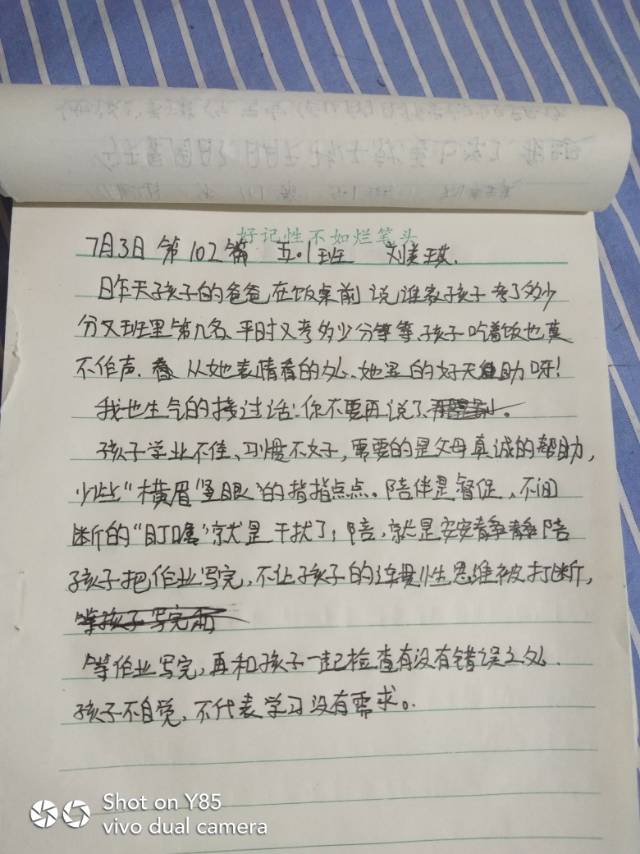 好记性不如烂笔头
7月3日 第102篇 五.1班 刘美琪.
昨天子孩子的爸爸,在饭桌前说,谁家孩子考了多少
分又班里第几名、平时又考多少分等等、孩子吃着饭也莫
不作声. 从她表情看的处、她是的好无助呀!
我也生气的接过话:你不要再说了、
孩子学业不佳、习惯不好,需要的是父母真诚的帮助,
少些“横眉”竖眼”的指指点点。陪伴是督促,不间
断的“叮嘱”就是干扰了;陪,就是安安静静陪
孩子把作业写完,不让孩子的连贯性思维被打断,
等孩子写完
等作业写完,再和孩子一起检查有没有错误之处.
孩子不自觉,不代表学习没有需求。
Shot on Y85
vivo dual camera